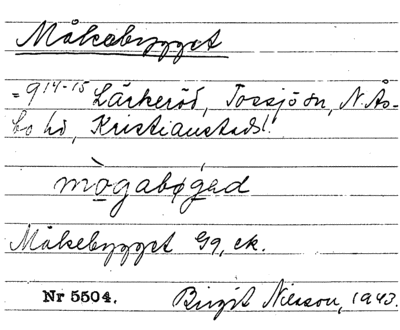 Måkebygget
= 9¹⁴⁻¹⁵ Lärkeröd, Tossjö sn, N. Ås-
bo hd, Kristianstads l.
mògabǿgad
Måkebygget Gg, ek.
Nr 5504. Birgit Nilsson, 1943.